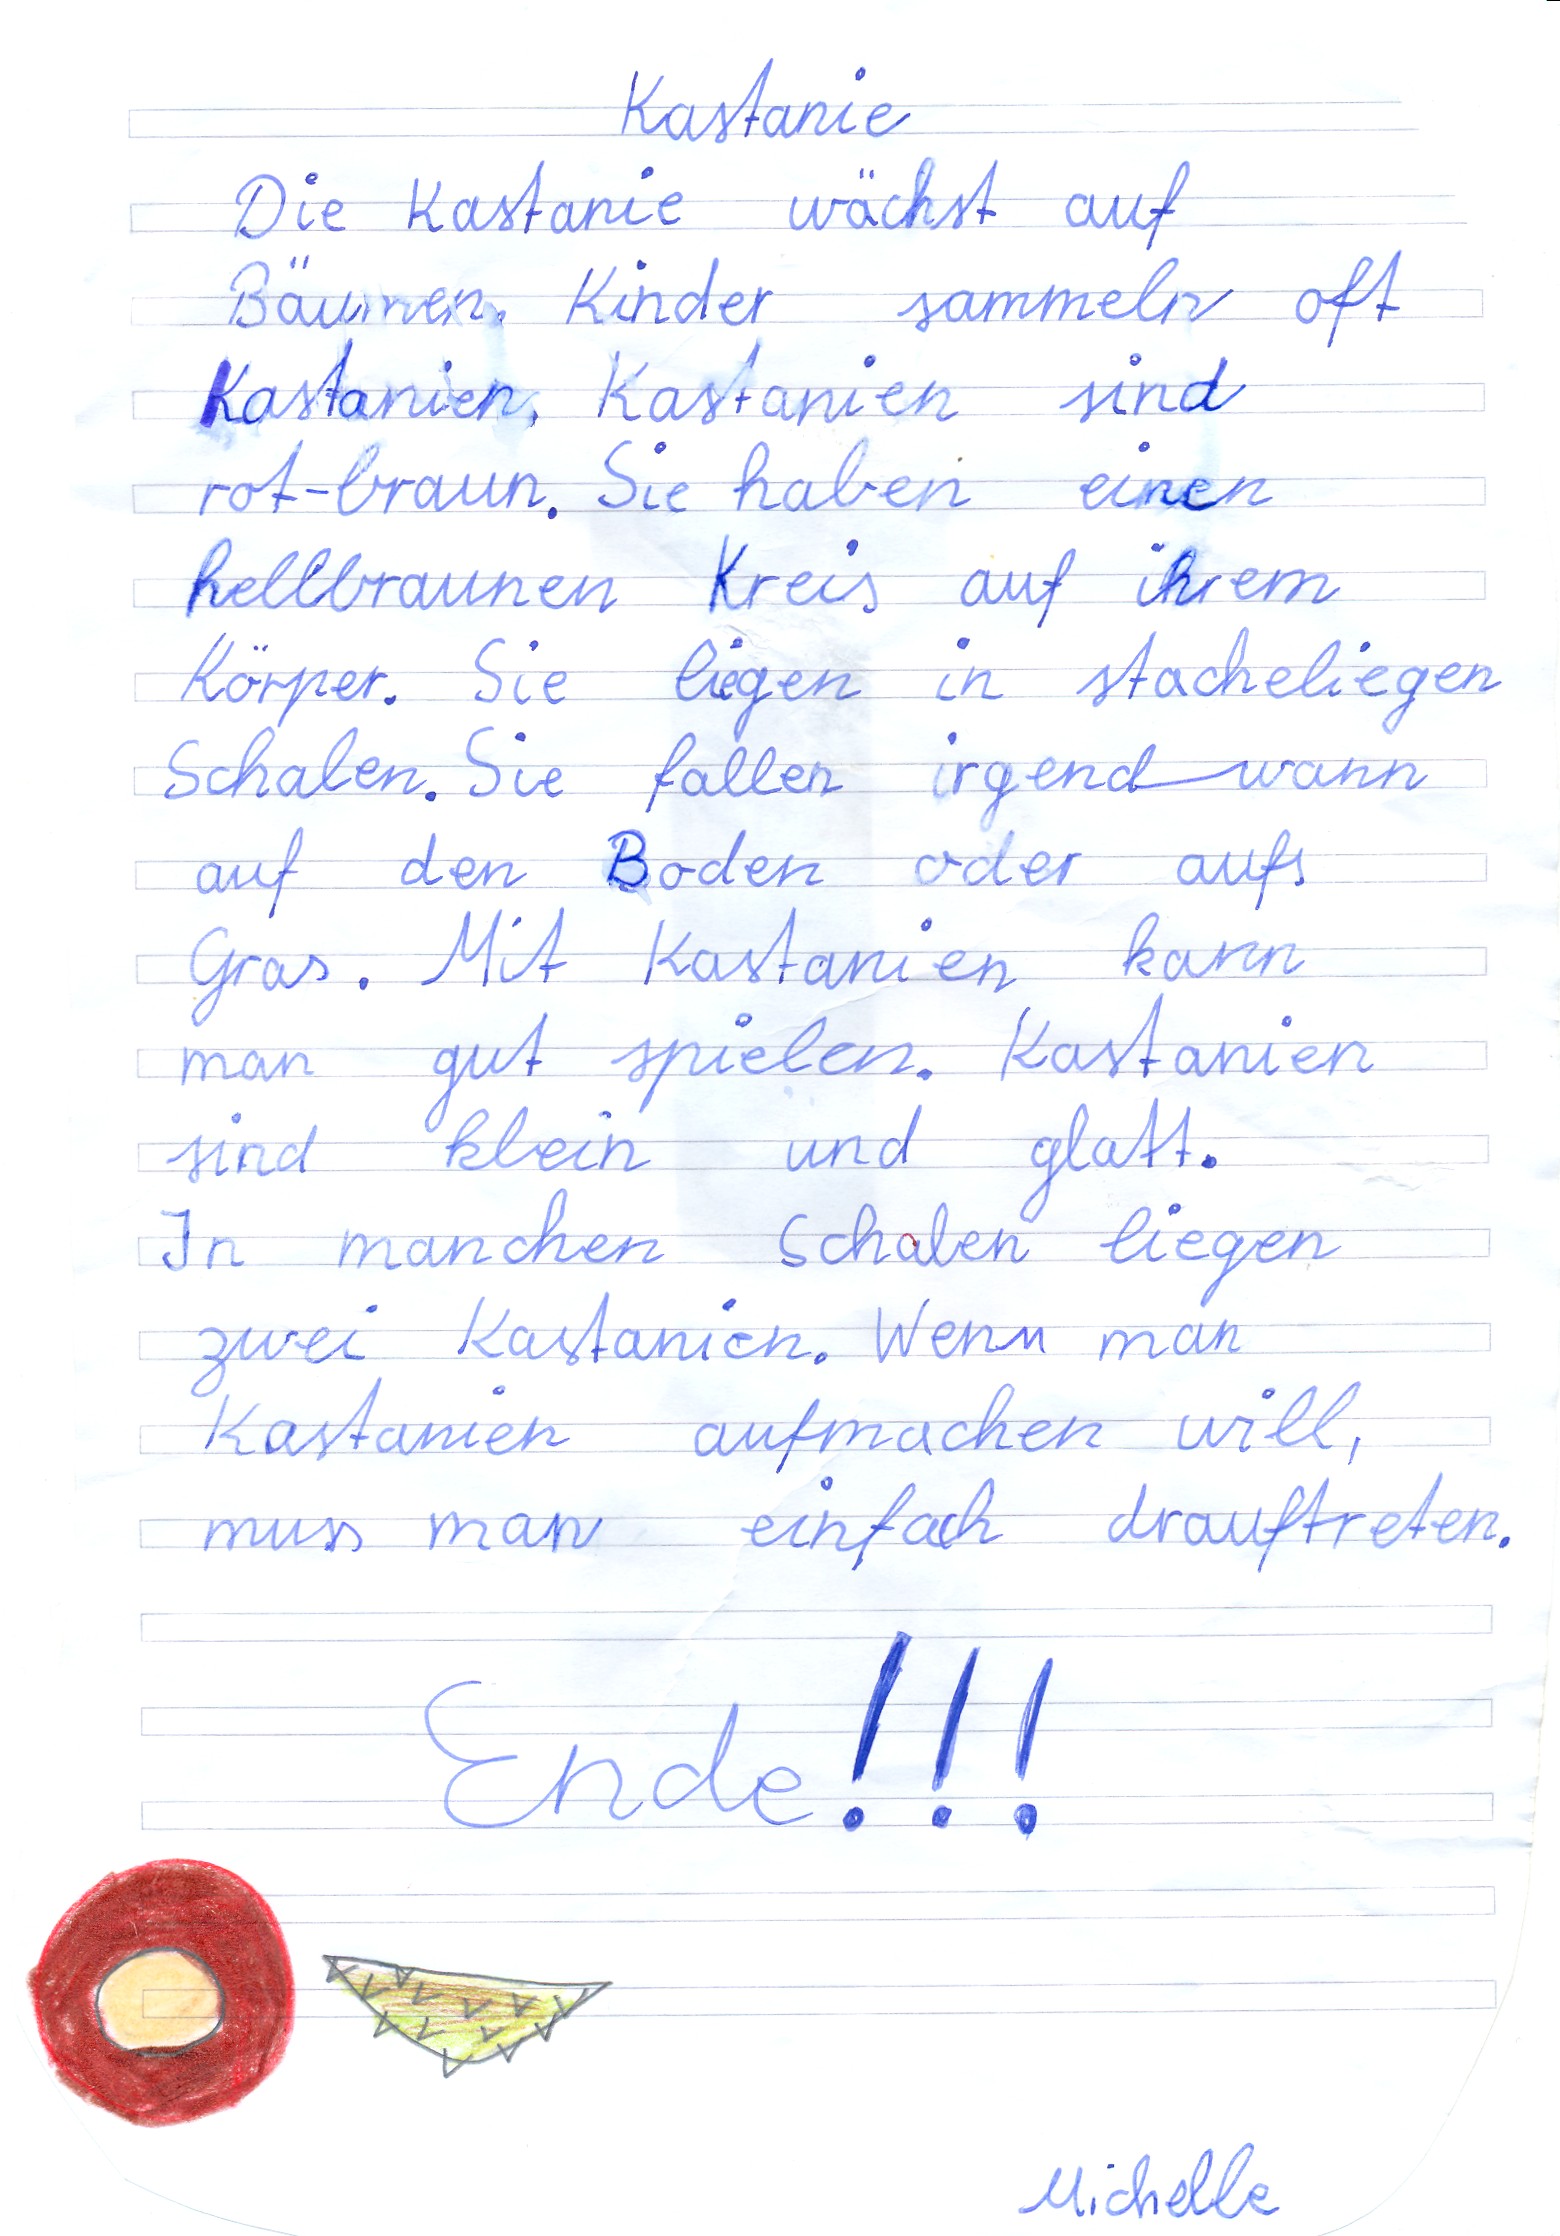 Kastanie
Die Kastanie wächst auf
Bäumen. Kinder sammeln oft
Kastanien. Kastanien sind
rot-braun. Sie haben einen
hellbraunen Kreis auf ihrem
Körper. Sie liegen in stacheliegen
Schalen. Sie fallen irgend wann
auf den Boden oder aufs
Gras. Mit Kastanien kann
man gut spielen. Kastanien
sind klein und glatt.
In manchen Schalen liegen
zwei Kastanien. Wenn man
Kastanien aufmachen will,
muss man einfach drauftreten.
Ende!!!
Michelle